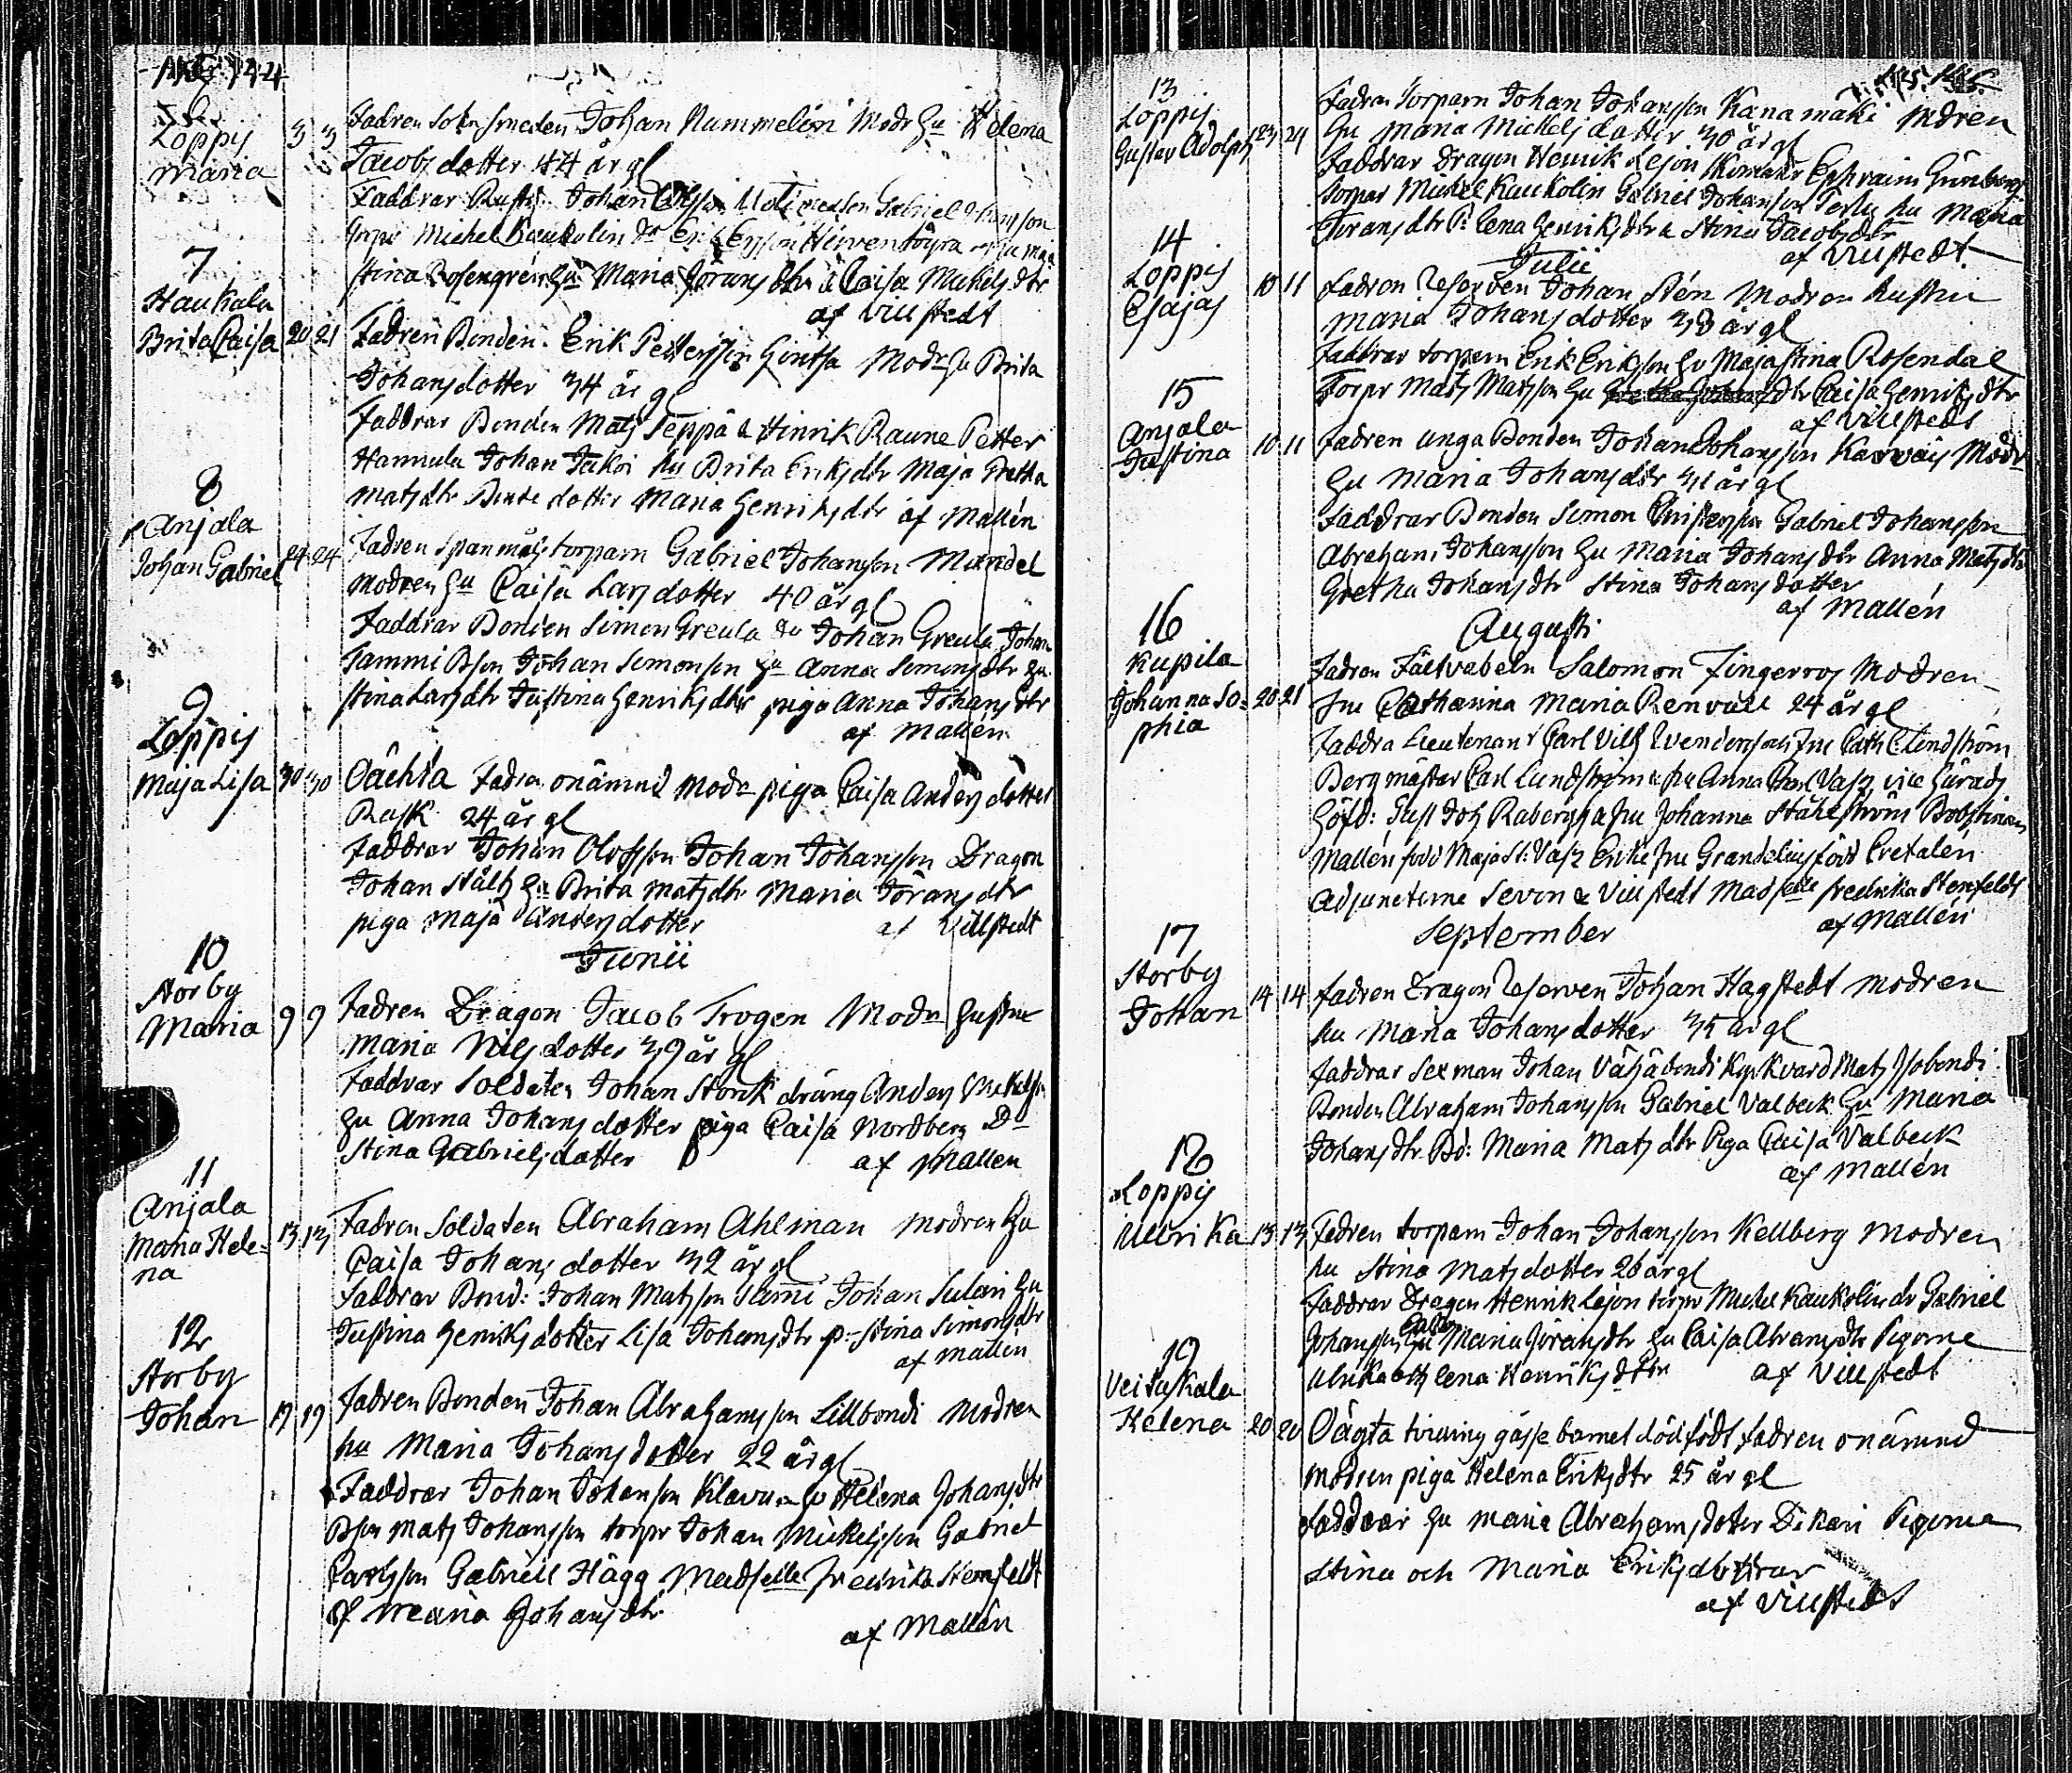 6
Loppis
Maria
3 3
Fadren Sokn Smeden Johan Nummelin Modr Hu Helena
Jacobsdotter 44 år gl
Faddrar Johan Gabriel
Michel Kaukolin
Stina Rosengren Hu Maria Göransdtr & Caisa Mickelsdtr
af Villstedt
7
Haukala
Brita Caisa
20 21
Fadren Bonden Erik Pettersson Modr Hu Brita
Johansdotter 34 år gl
Faddrar Bonden Mats Seppä & Hinrik Raune Petter
Hannula Johan Hu Brita Eriksdtr Maja Gretha
Matsdtr Bonde dotter Maria Henriksdtr af Mallén
8
Anjala
Johan Gabriel
24 24
Fadren Spanmåls torparn Gabriel Johansson Mandel
Modren Hu Caisa Larsdotter 40 år gl
Faddrar Bonden Simon Greula do Johan Greula Johan
Tammi Bson Johan Simonson Hu Anna Simonsdtr Hu
Stina Larsdtr Justina Henriksdtr piga Anna Johansdtr
af Mallén
9
Loppis
Maja Lisa
30 30
Oächta Fadren onämnd Modr piga Caisa Andersdotter
Rask 24 år gl
Faddrar Johan Olofsson Johan Johansson Dragon
Johan Stålt Hu Brita Matsdtr Maria Göransdtr
piga Maja Andersdotter af Villstedt
Junii
10
Storby
Maria
9 9
Fadren Dragon Jacob Trogen Modr Hustru
Maria Nilsdotter 39 år gl
Faddrar Soldaten Johan Stork dräng Anders
Hu Anna Johansdotter piga Caisa Nordberg Do
Stina Gabrielsdotter af Mallen
11
Anjala
Maria Hele=
na
13 13
Fadren Soldaten Abraham Ahlman Modren Hu
Caisa Johansdotter 32 år gl
Faddrar Bond: Johan Matsson Johan Sulari Hu
Justina Henriksdotter Lisa Johansdtr p: Stina Simonsdtr
af Mallén
12
Storby
Johan
17 19
Fadren Bonden Johan Abrahamsson Lillbondi Modren
hu Maria Johansdotter 22 år gl
Faddrar Johan Johansson Helena Johansdtr
Bson Mats Johansson torpr Johan Mickelsson Gabriel
Carlsson Gabriell Hägg Madselle Fredrika Stenfeldt
Maria Johansdtr
af Mallén
13
Loppis
Gustav Adolph
23 24
Fadren Torparn Johan Johansson Kanamäki Mdren
Hu Maria Mickelsdotter 30 år gl
Faddrar Dragon Henrik Lejon Ephraim Grönberg
Torpar Mickel Kaukolin Gabriel Johansson hu Maria
Göransdtr P: Lena Henriksdtr & Stina Jacobsdtr
af Villstedt
Julii
14
Loppis
Esajas
10 11
Fadren Reserven Johan Stén Modren hustru
Maria Johansdotter 38 år gl
Faddrar torparn Erik Eriksson Hu Majastina Rosendal
Torpr Mats Matsson Hu Caisa Henriksdtr
af Villstedt
15
Anjala
Justina
10 11
Fadren unga Bonden Johan Johansson Modr
Hu Maria Johansdtr 31 år gl
Faddrar Bonden Simon Christersson Gabriel Johansson
Abraham Johansson Hu Maria Johansdtr Anna Matsdtr
Gretha Johansdtr Stina Johansdotter
af Mallén
Augusti
16
Kupila
Johanna So=
phia
20 21
Fadren Fältväbeln Salomon Fingerroos Modren
Fru Catharina Maria Renvall 24 år gl
Faddra Lieutenant Carl Vilh Fru Cath C Lindström
Bergmästar Carl Lundström & fru Anna vice Härads
Höfd: Gust Joh Rabergh & fru Johanna Ståhlström
Mallén född Enke fru Grandelius född Cretalén
Adjuncterne Sevon & Villstedt Madselle Fredrika Stenfeldt
af Mallén
September
17
Storby
Johan
14 14
Fadren Dragon Reserven Johan Hagstedt Modren
hu Maria Johansdotter 35 år gl
Faddrar Sexman Johan Kyrkvärd Mats Isobondi
Bonden Abraham Johansson Gabriel Valbeck Hu Maria
Johansdtr Bd: Maria Matsdtr Piga Caisa Valbeck
af Mallén
18
Loppis
Ullrika
13 13
Fadren torparn Johan Johansson Kellberg Modren
hu Stina Matsdotter 26 år gl
Faddrar Dragon Henrik Lejon torpr Mickel Kaukolin dr Gabriel
Johansson Hu Maria Göransdtr Hu Caisa Abramsdtr Pigorne
Ulrika och Lena Henriksdttr af Villstedt
19
Veituskala
Helena
20 20
Oägta tvilling gåsse barnet dödfödt, fadren onämnd
Modren piga Helena Eriksdtr 25 år gl
Faddrar Hu Maria Abrahamsdotter Dikari Pigorna
Stina och Maria Eriksdöttrar
af Villstedt